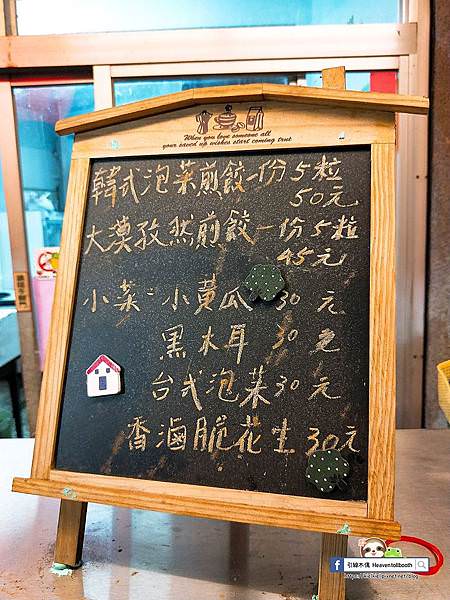 When you love someone all
your saved up wishes start coming trut
韓式泡菜煎餃一份5粒
50元
大漠孜然煎餃一份5粒
45元
小菜：小黃瓜30元
黑木耳30元
台式泡菜30元
香滷脆花生30元
引線不傷 Heaventollbooth